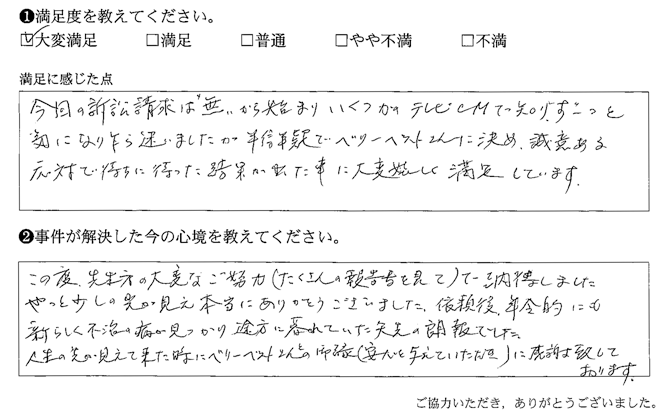 ❶満足度を教えてください。
☑大変満足 □満足 □普通 □やや不満 □不満
満足に感じた点
今回の訴訟請求は"無"から始まり いくつかのテレビCMで知り、ずーっと
気になり乍ら迷いましたが 半信半疑でベリーベストさんに決め、誠意ある
応対で待ちに待った結果が出た事に大変嬉しく満足しています。
❷事件が解決した今の心境を教えてください。
この度、先生方の大変なご努力(たくさんの報告書を見て)で納得しました
やっと少しの先が見え本当にありがとうございました。依頼後、年令的にも
新らしく不治の病が見つかり途方に暮れていた矢先の朗報でした。
人生の先が見えて来た時にベリーベストさんとの御縁(安心を与えていただき)に感謝致して
おります。
ご協力いただき、ありがとうございました。